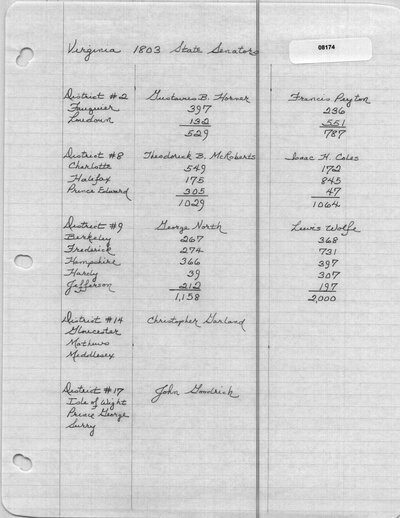 Virginia 1803 State Senators
08174
District #2 Gustavus B. Horner Francis Peyton
Fauquier 397 236
Loudoun 132 551
529 787
District #8 Theodorick B. McRoberts Isaac H. Coles
Charlotte 549 172
Halifax 175 845
Prince Edward 305 47
1029 1064
District #9 George North Lewis Wolfe
Berkeley 267 368
Frederick 274 731
Hampshire 366 397
Hardy 39 307
Jefferson 212 197
1,158 2,000
District #14 Christopher Garland
Gloucester
Mathews
Middlesex
District #17 John Goodrich
Isle of Wight
Prince George
Surry